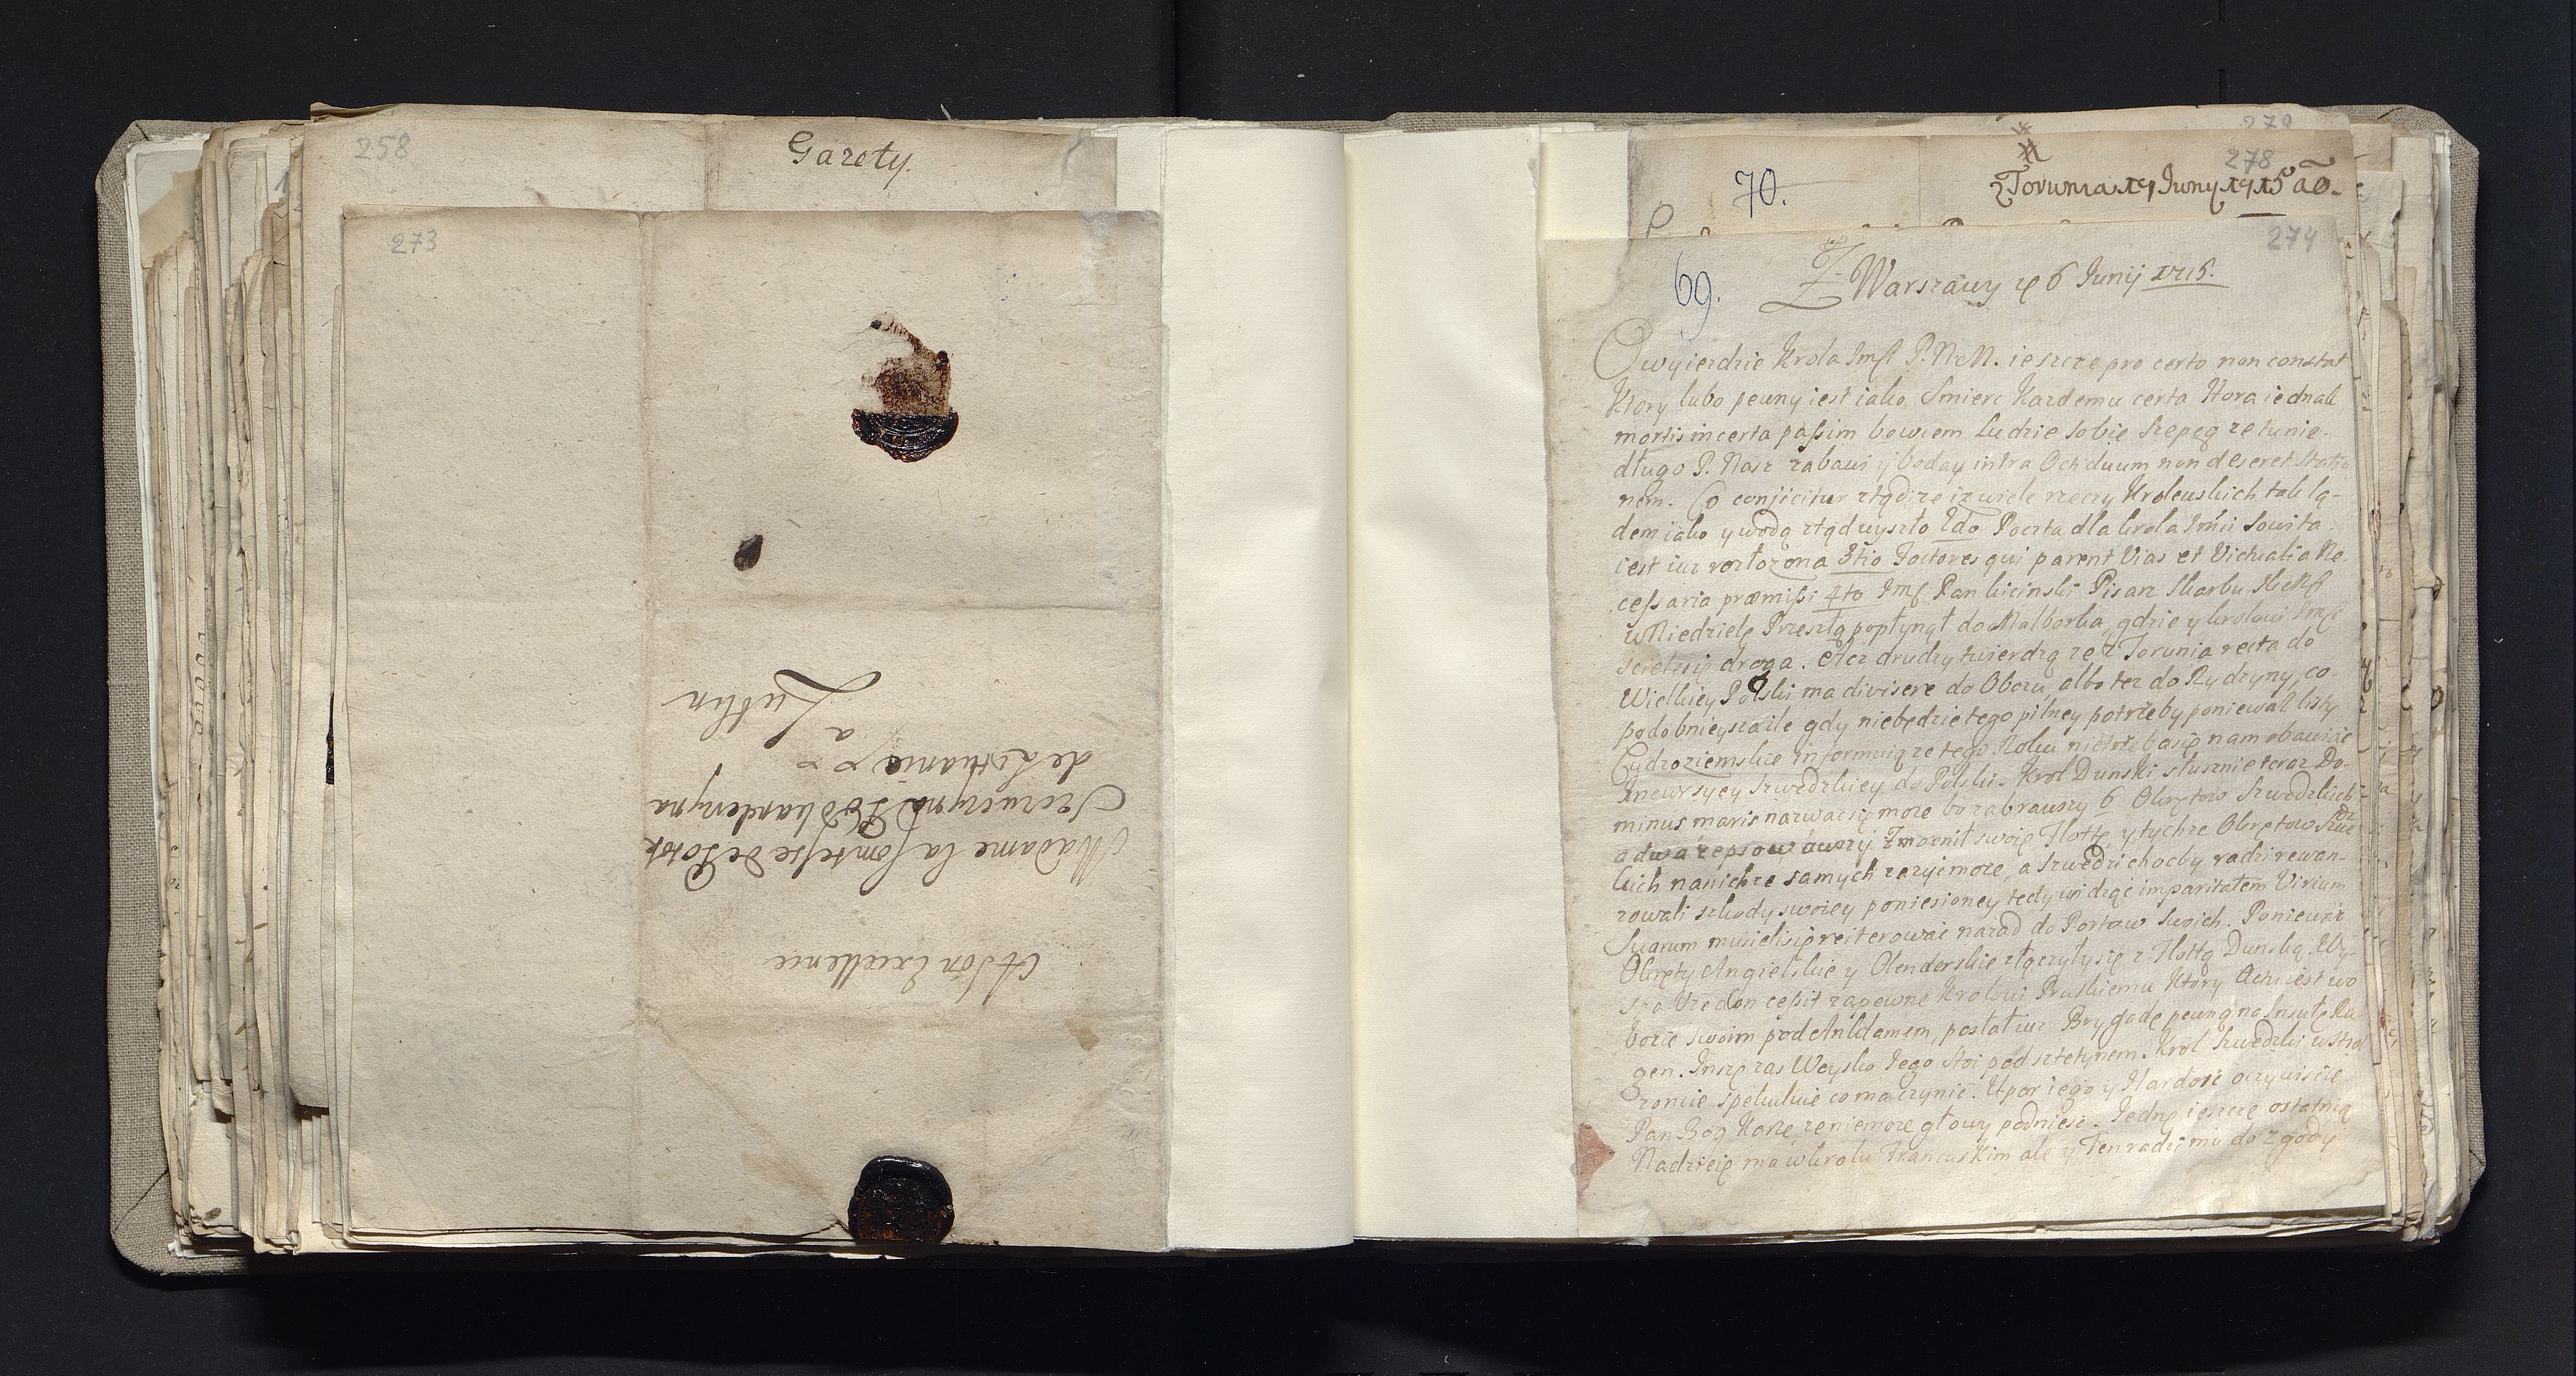 258
Gazety.
273
A Son Excellence
Madame la Comtesse de
de Lituanie
a
Lublin
279
278
70.
z Torunia 19 Juny 1715 ao.
274
69.
Z Warszawy 6 Junij 1715.
O wyieżdzie Krola Jmści P. N. M. ieszcze pro certo non constat
Ktory lubo pewny iest iako Smierc Kazdemu certa Hora iednak
mortis incerta passim bowiem Ludzie sobie szepcą ze tu nie
długo P. Nasz zabawi y boday intra Octiduum non deseret statio
nem. Co conjicitur ztąd ze iz wiele rzeczy Krolewskich tak lą-
dem iako y wodą ztąd wyszło 2do Poczta dla krola Jmci Sowita
iest iuz rozłozona 3tio Foctores qui parent Vias et Victualia Ne
cessaria præmissi 4to Jmść Pan Pisarz Skarbu
w Niedzielę Przeszłą popłynął do Malborka, gdzie y krolowi Jmść
sciele się droga. Acz drudzy twierdzą ze z Torunia recta do
Wielkiey Polski ma divisere do Obozu, albo tez do Rydzyny, co
podobnieysza ile gdy niebędzie tego pilney potrzeby poniewaz listy
Cudzoziemskie informuią ze tego Roku nietrzeba się nam obawiac
Jncursyey Szwedzkiey do Polski. Krol Dunski słusznie teraz Do-
minus maris nazwac się moze bo zabrawszy 6 Okrętow Szwedzkich
a dwa zepsowawszy Zmocnił swoię Flottę, y tychze Okrętow Szwedz
kich na nichze samych zazyc moze, a Szwedzi choc by radzi rewan-
zowali szkody swoiey poniesioney tedy widząc imparitatem Virium
Suarum musieli się reiterowac nazad do Portow Swoich. Poniewaz
Okręty Angielskie y Olenderskie złączyły się z Flottą Dunską. Wy-
spa Uzedon cessit zapewne Krolowi Pruskiemu Ktory Actu iest w o
bozie swoim pod Anklamem, posłał iuz Brygadę pewną na Jnsułę Ru
gen. Jnsze zas Woysko Jego stoi pod Sztetynem. Krol Szwedzki w Stral
zoncie spekuluie co ma czynic. Upor iego y Hardosc oczywiscie
Pan Bog Karze ze niemoze głowy podniesc. Jednę ieszcze ostatnią
Nadzieię ma w krolu Francuskim ale y Ten radzi mu do zgody